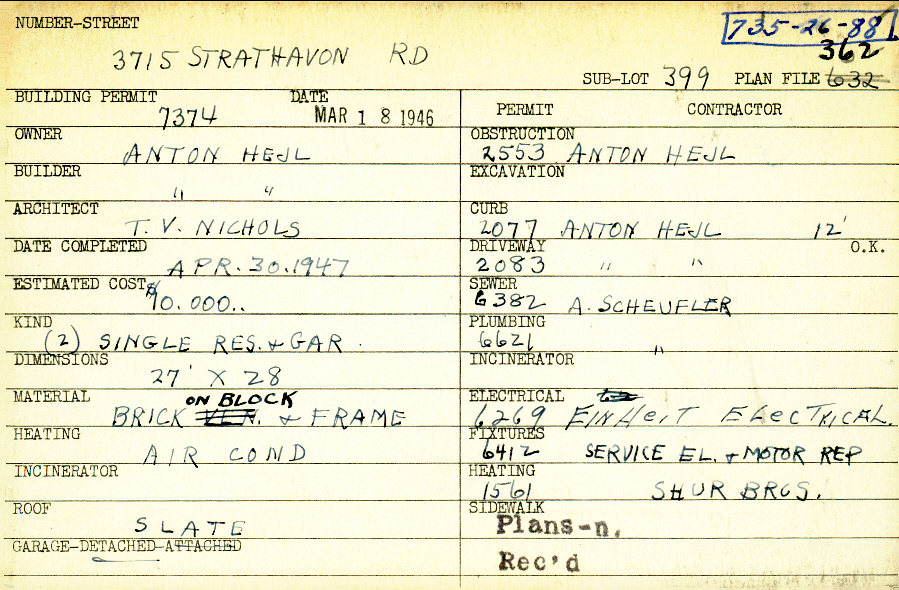 NUMBER-STREET
735-26-88
3715 STRATHAVON RD
362
SUB-LOT 399 PLAN FILE 632
BUILDING PERMIT DATE
7374 MAR 18 1946
OWNER
ANTON HEJL
BUILDER
" "
ARCHITECT
T. V. NICHOLS
DATE COMPLETED
APR. 30. 1947
ESTIMATED COST
$10.000..
KIND
(2) SINGLE RES. & GAR.
DIMENSIONS
27' X 28
MATERIAL
ON BLOCK
BRICK VEN. & FRAME
HEATING
AIR COND
INCINERATOR
ROOF
SLATE
GARAGE-DETACHED-ATTACHED
PERMIT CONTRACTOR
OBSTRUCTION
2553 ANTON HEJL
EXCAVATION
CURB
2077 ANTON HEJL 12'
DRIVEWAY O.K.
2083 " "
SEWER
6382 A. SCHEUFLER
PLUMBING
6621 "
INCINERATOR
ELECTRICAL
6269 EINHEIT ELECTRICAL.
FIXTURES
6412 SERVICE EL. & MOTOR REP
HEATING
1561 SHUR BROS.
SIDEWALK
Plans-n.
Rec'd